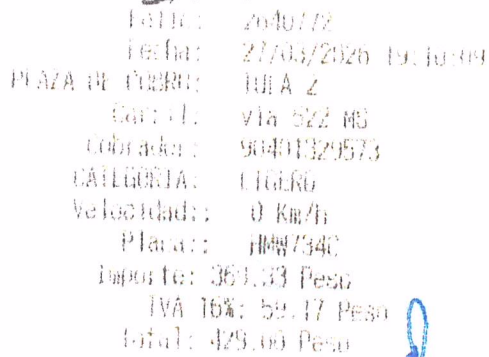 Folio: 2640772
Fecha: 27/03/2026 19:10:09
PLAZA DE COBRO: TULA 2
Carril: vía 522 MS
Cobrador: 90401329573
CATEGORIA: LIGERO
Velocidad:: 0 Km/h
Placa:: HMW734C
Importe: 369.83 Peso
IVA 16%: 59.17 Peso
Total: 429.00 Peso